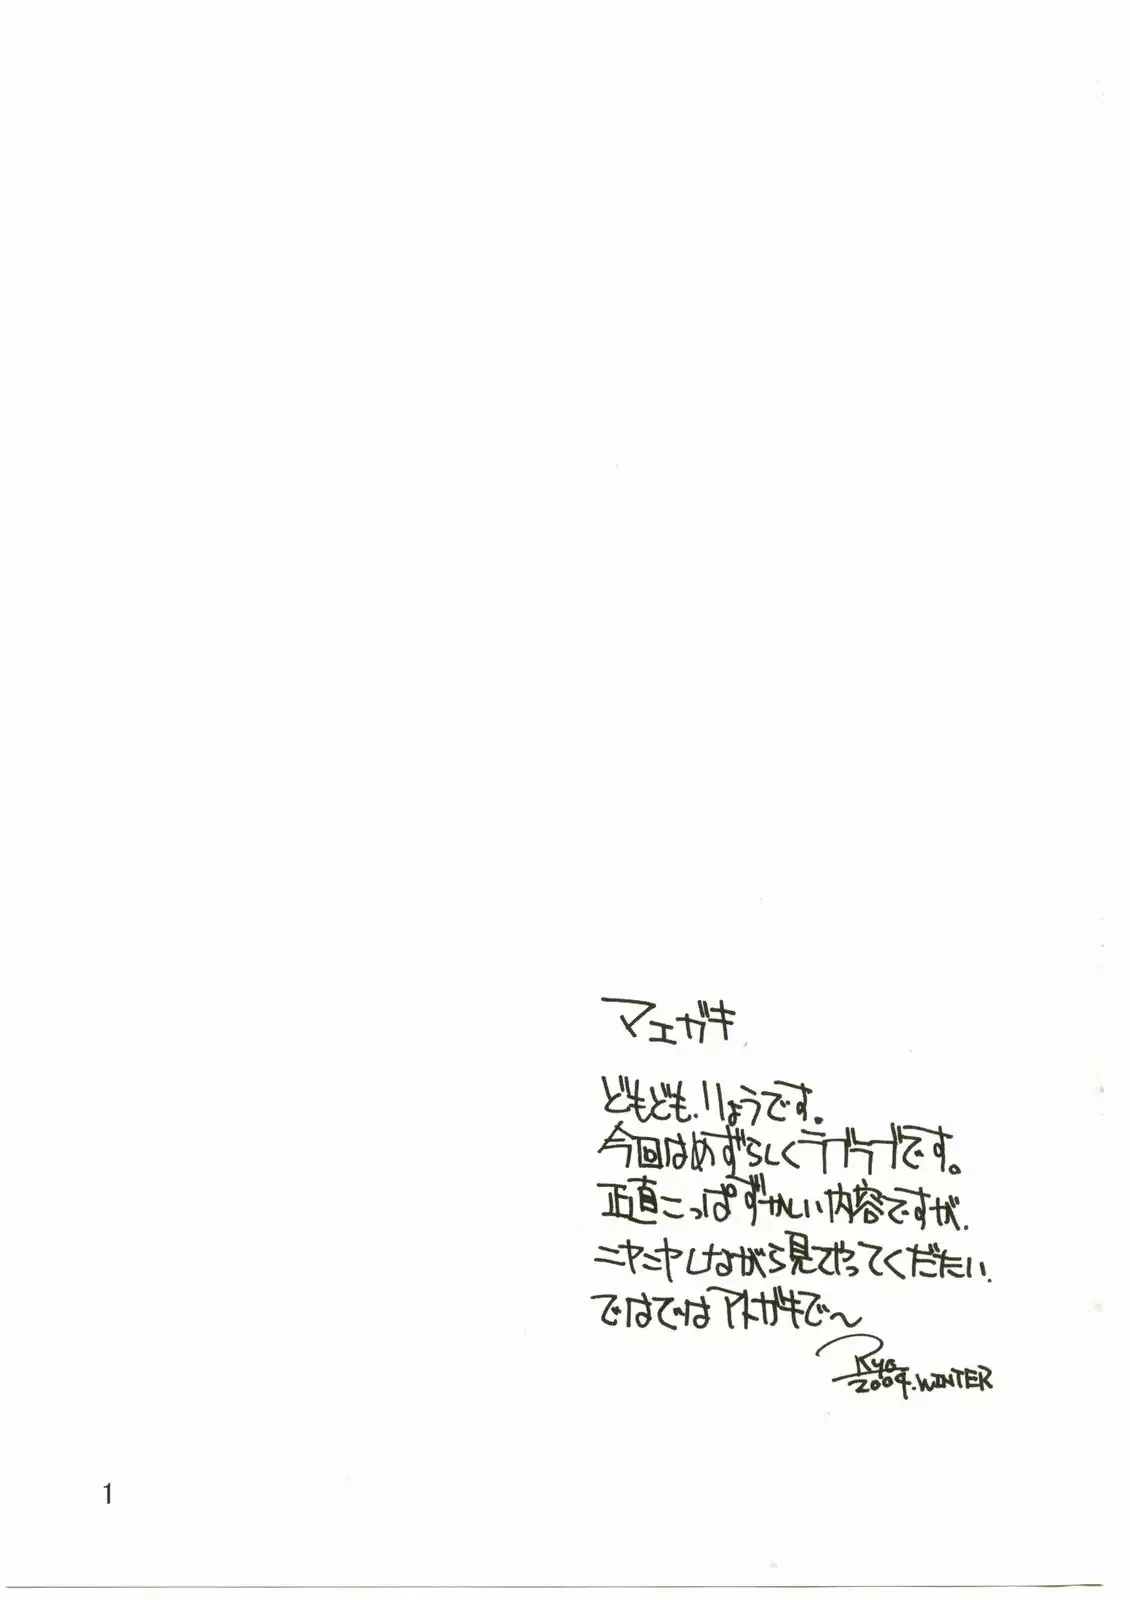 マエガキ
どもども、りょうです。
今回はめずらしくラブラブです。
正直こっぱずかしい内容ですが、
ニヤニヤしながら見てやってくだたい、
ではではアトガキで～
Ryo
2004.WINTER
1